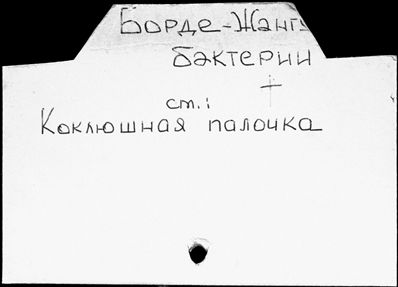 Борде-Жангу
бактерии
+
см.:
Коклюшная палочка